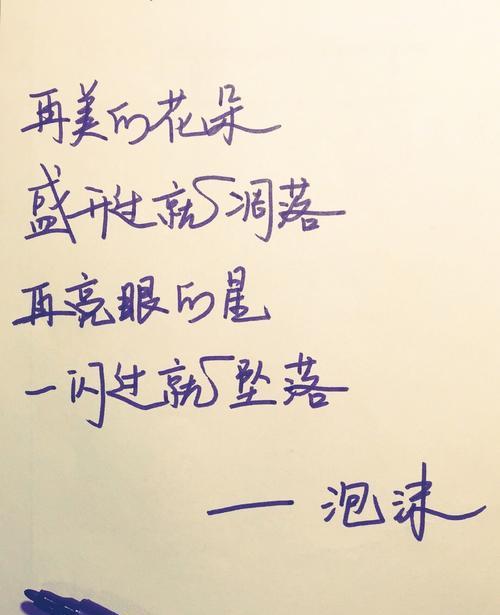 再美的花朵
盛开过就凋落
再亮眼的星
一闪过就坠落
—泡沫